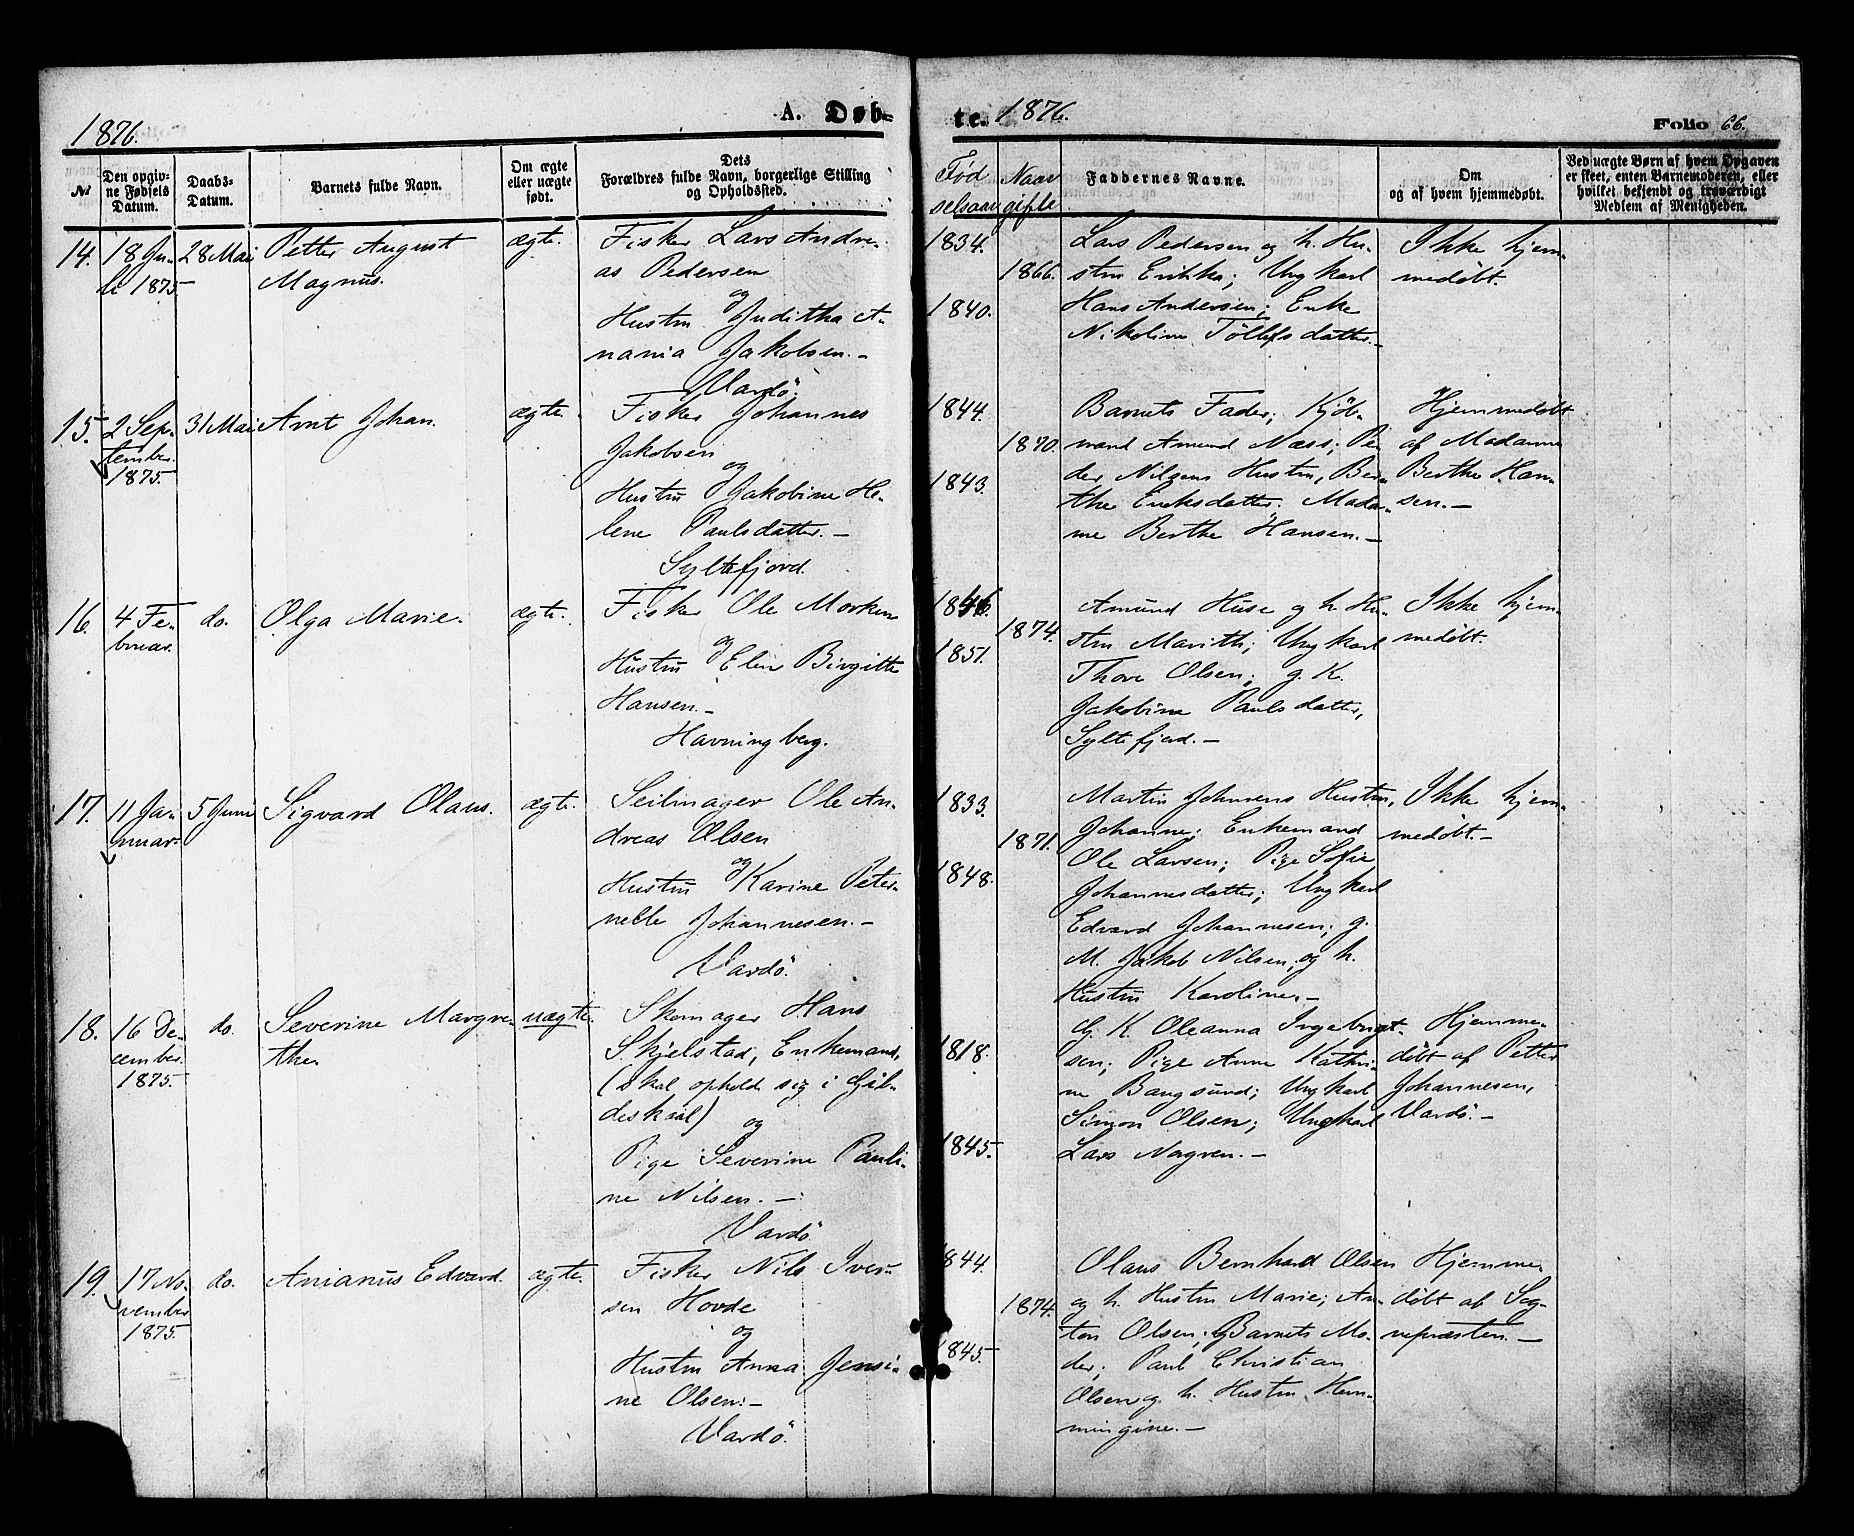 1876.
A. Døb-
te. 1876.
Folio 66.
No
Den opgiv-
ne Fødsels
Datum.
Daabs-
Datum.
Barnets fulde Navn.
Om ægte
eller uægte
født.
Dets
Forældres fulde Navn, borgerlige Stilling
og Opholdssted.
Fød
selsaar
Naar
gifte
Faddernes Navne.
Om
og af hvem hjemmedøbt.
Ved uægte Børn af hvem Opgaven
er skeet, enten Barnemoderen, eller
hvilket bekjendt og troværdigt
Medlem af Menigheden.
14.
18 Ju-
li 1875
28 Mai
Petter August
Magnus.
ægte.
Fisker Lars Andre-
as Pedersen
og
Hustru Juditha A-
nania Jakobsen.-
Vardö.
1834.
1840.
1866.
Lars Pedersen og h. Hu-
stru Erikka; Ungkarl
Hans Andersen; Enke
Nikoline Töllefsdatter.-
Ikke hjem-
medøbt.
15.
2 Sep-
tember.
1875.
31 Mai
Arnt Johan.
ægte.
Fisker Johannes
Jakobsen
og
Hustru Jakobine He-
lene Paulsdatter.-
Syltefjord.
1844.
1843.
1870.
Barnets Fader; Kjöb-
mand Amund Næss; Pe-
der Nilsens Hustru, Ber-
the Eriksdatter. Mada-
me Berthe Hansen.-
Hjemmedøbt
af Madame
Berthe Han-
sen.-
16.
4 Fe-
bruar.
do.
Olga Marie.
ægte.
Fisker Ole Morken
og
Hustru Elen Birgitte
Hansen.-
Havningberg.
1846.
1851.
1874.
Amund Huse og h. Hu-
stru Marith; Ungkarl
Thore Olsen; g. K.
Jakobine Paulsdatter,
Syltefjord.-
Ikke hjem-
medøbt.
17.
11 Ja-
nuar.
5 Juni
Sigvard Olaus.
ægte.
Seilmager Ole An-
dreas Olsen
og
Hustru Karine Peter-
nelle Johannesen.-
Vardö.
1833.
1848.
1871.
Martin Johnsens Hustru,
Johanne; Enkemand
Ole Larsen; Pige Sofie
Johannesdatter; Ungkarl
Edvard Johannesen; g.
M. Jakob Nilsen, og h.
Hustru Karoline.-
Ikke hjem-
medøbt.-
18.
16 De-
cember.
1875.
do.
Severine Margre-
the.
uægte.
Skomager Hans
Skjelstad, Enkemand,
(skal opholde sig i Gil-
deskaal)
og
Pige Severine Pauli-
ne Nilsen.-
Vardö
1818.
1845.
G. K. Oleanna Ingebrigt-
sen; Pige Anne Kathri-
ne Bangsund; Ungkarl
Simon Olsen; Ungkarl
Lars Norgren.-
Hjemme-
døbt af Petter
Johannesen,
Vardö.-
19.
17 No-
vember
1875.
do.
Anianus Edvard.
ægte.
Fisker Nils Iver-
sen Hovde
og
Hustru Anna Jensi-
ne Olsen.-
Vardö.
1844.
1845.
1874.
Olaus Bernhard Olsen
og h. Hustru Marie; An-
ton Olsen; Barnets Mo-
der; Paul Christian
Olsen og h. Hustru Hem-
mingine.-
Hjemme-
døbt af Sog-
nepræsten.-